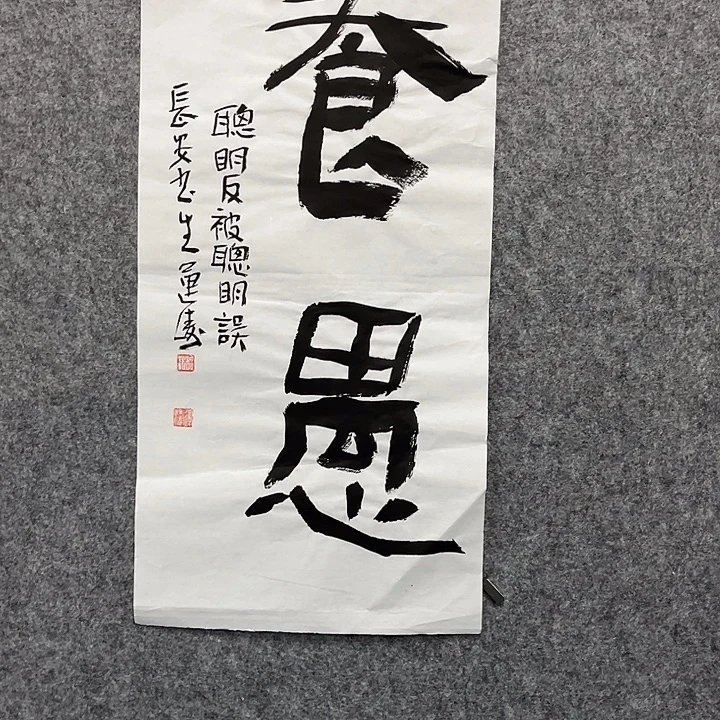 養愚
聰明反被聰明誤
長安書生蓮濤